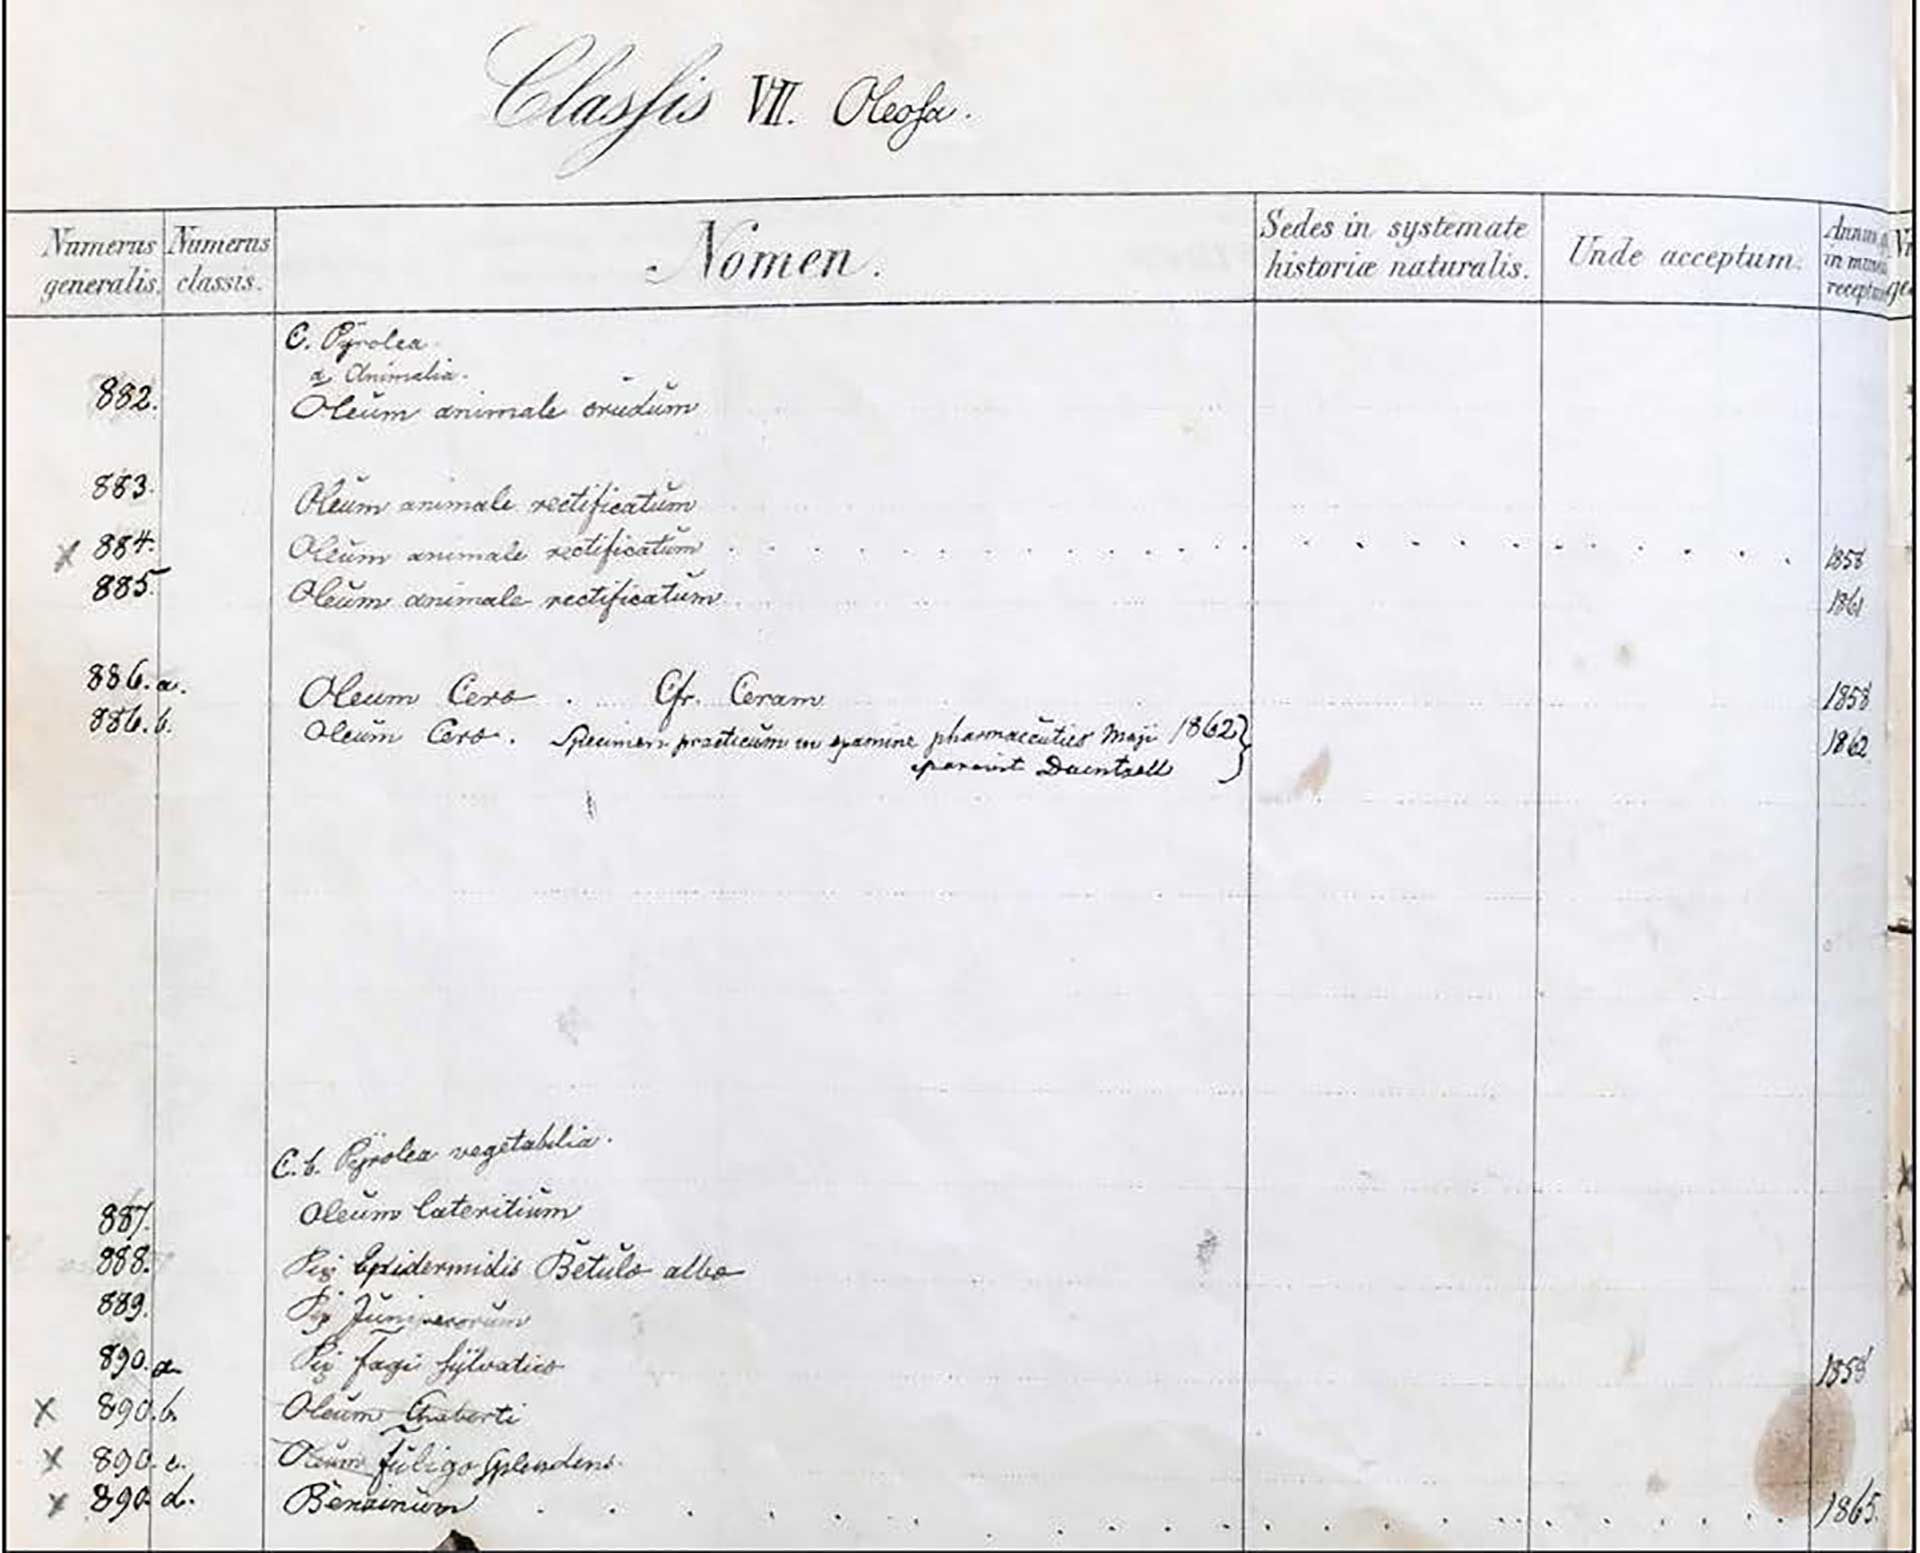 Classis VII. Oleosa.
Numerus generalis. Numerus classis. Nomen. Sedes in systemate historiæ naturalis. Unde acceptum. Annus in receptum
C. Pyrolea
a Animalia.
882. Oleum animale crudum
883. Oleum animale rectificatum
x 884. Oleum animale rectificatum 1858
885. Oleum animale rectificatum 1861
886. a. Oleum Ceræ . Cfr. Ceram 1858
886. b. Oleum Ceræ. Specimen practicum in examine pharmaceutico Maji 1862 } 1862
paravit
C. b. Pyrolea vegetabilia.
887. Oleum lateritium
888. Pix Epidermidis Betulæ albæ
889. Pix Juniperorum
890. a Pix Fagi sylvaticæ 1858
x 890. b. Oleum Chaberti
x 890. c. Oleum Fuligo splendens.
x 890. d. Benzinum 1865.